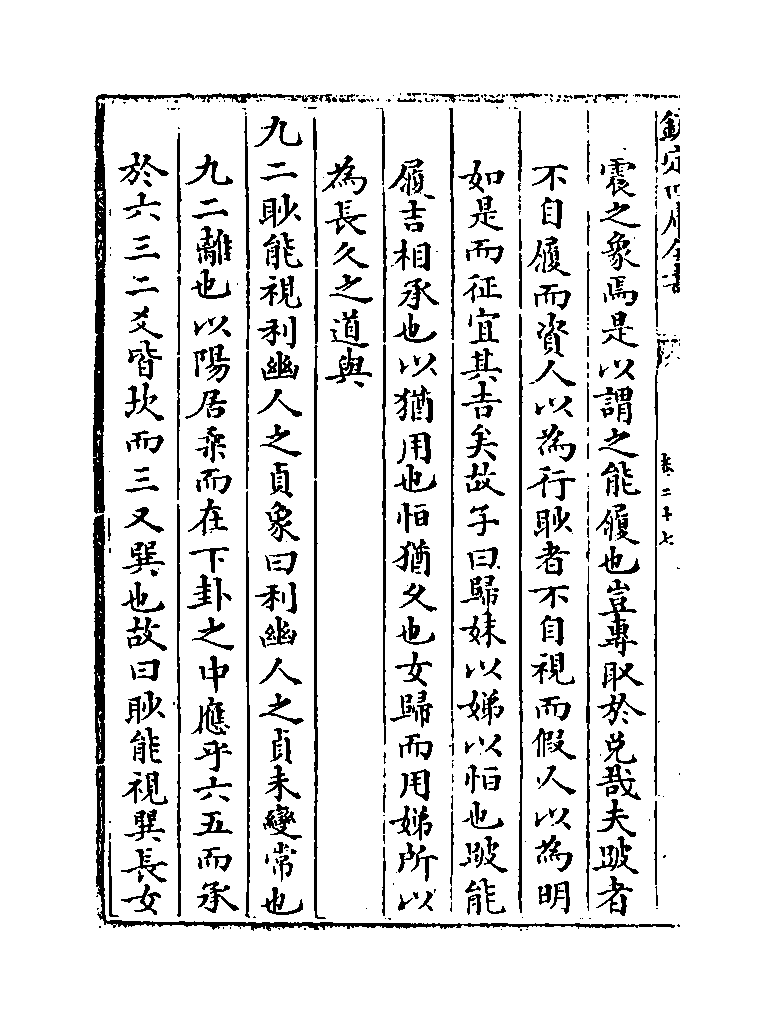 欽定四庫全書
卷二十七
震之象焉是以謂之能履也豈專取於兌哉夫跛者
不自履而資人以為行眇者不自視而假人以為明
如是而征宜其吉矣故子曰歸妹以娣以恒也跛能
履吉相承也以猶用也恒猶久也女歸而用娣所以
為長久之道與
九二眇能視利幽人之貞象曰利幽人之貞未變常也
九二離也以陽居柔而在下卦之中應乎六五而承
於六三二爻皆坎而三又巽也故曰眇能視巽長女